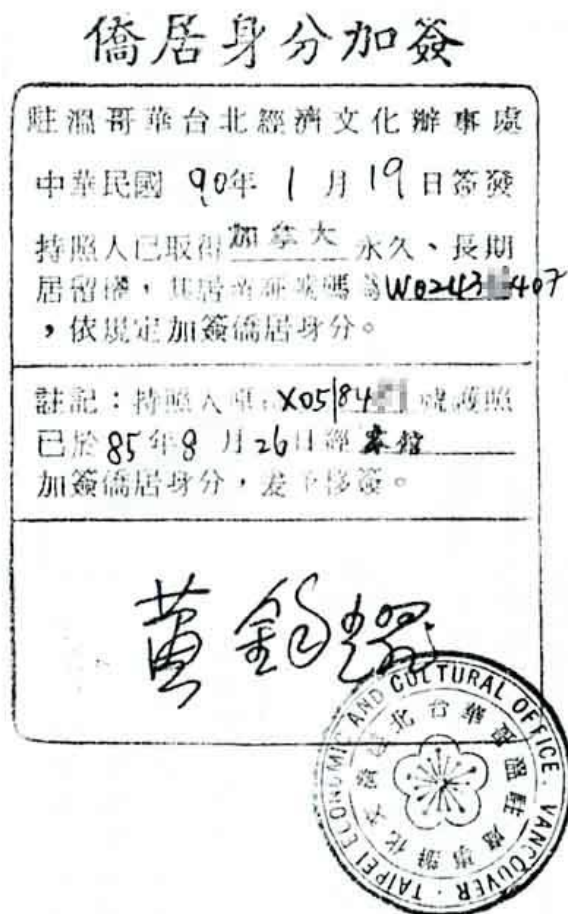 僑居身分加簽
駐溫哥華台北經濟文化辦事處
中華民國 90年 1 月 19 日簽發
持照人已取得加拿大永久、長期
居留權,其居留証號碼為W0243 407
,依規定加簽僑居身分。
註記:持照人原 X05184 號護照
已於85年8月26日經本館
加簽僑居身分,差予移簽。
TAIPEI ECONOMIC AND CULTURAL OFFICE, VANCOUVER
駐溫哥華台北經濟文化辦事處